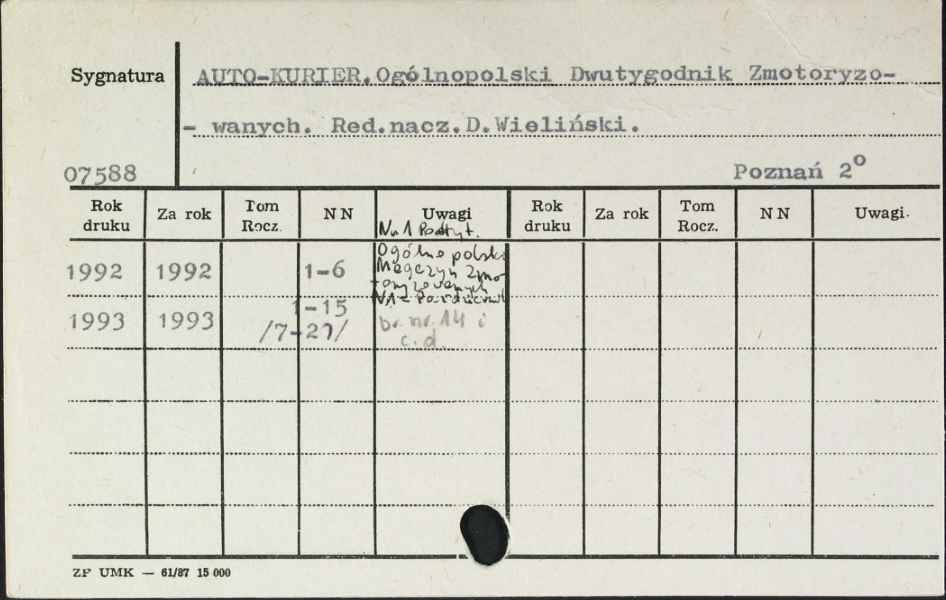 Sygnatura AUTO-KURIER.Ogólnopolski Dwutygodnik Zmotoryzo-
- wanych. Red.nacz.D.Wieliński.
07588 Poznań 2º
Rok druku Za rok Tom Rocz. NN Uwagi Rok druku Za rok Tom Rocz. NN Uwagi.
Nr 1 Podtyt.
Ogólnopolski
1992 1992 1-6 Magazyn Zmo-
toryzowanych
1-15
1993 1993 /7-21/ br. nr. 14 i
c.d.
ZP UMK — 61/87 15 000